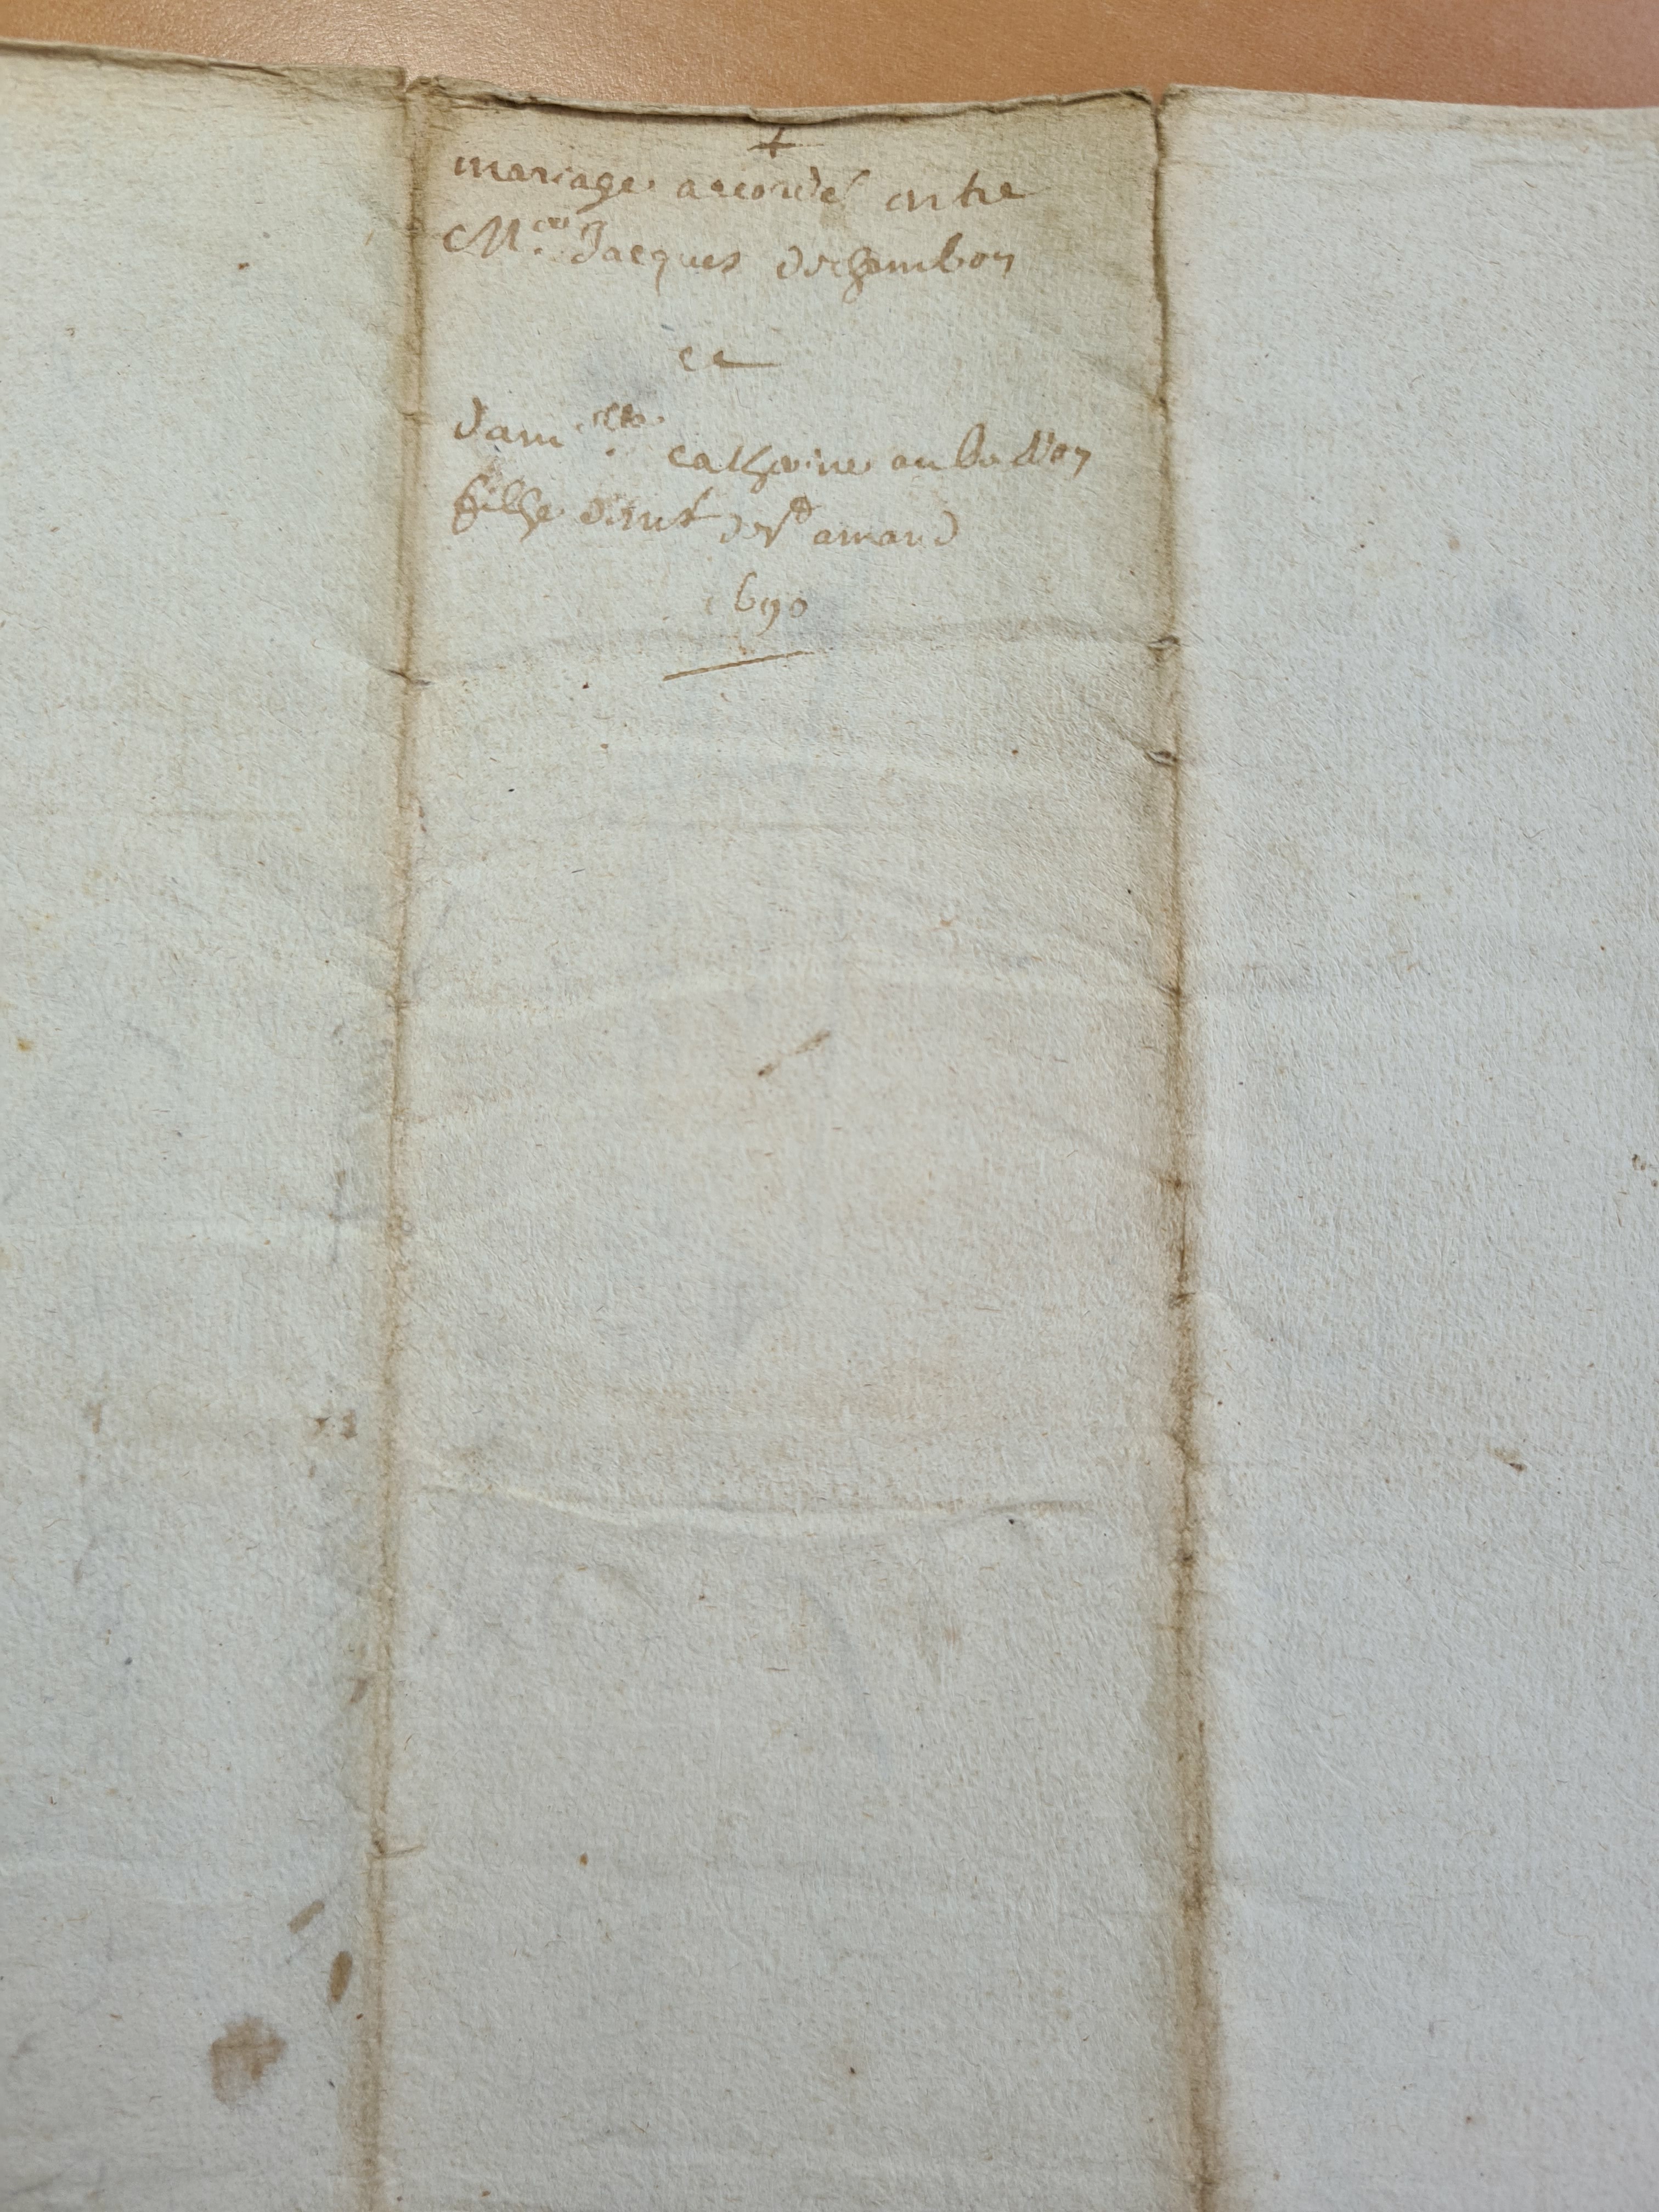 +
mariage accordé entre
M.re Jacques dechambon
et
dam.elle catherine aubu
filhe de st amand
1690